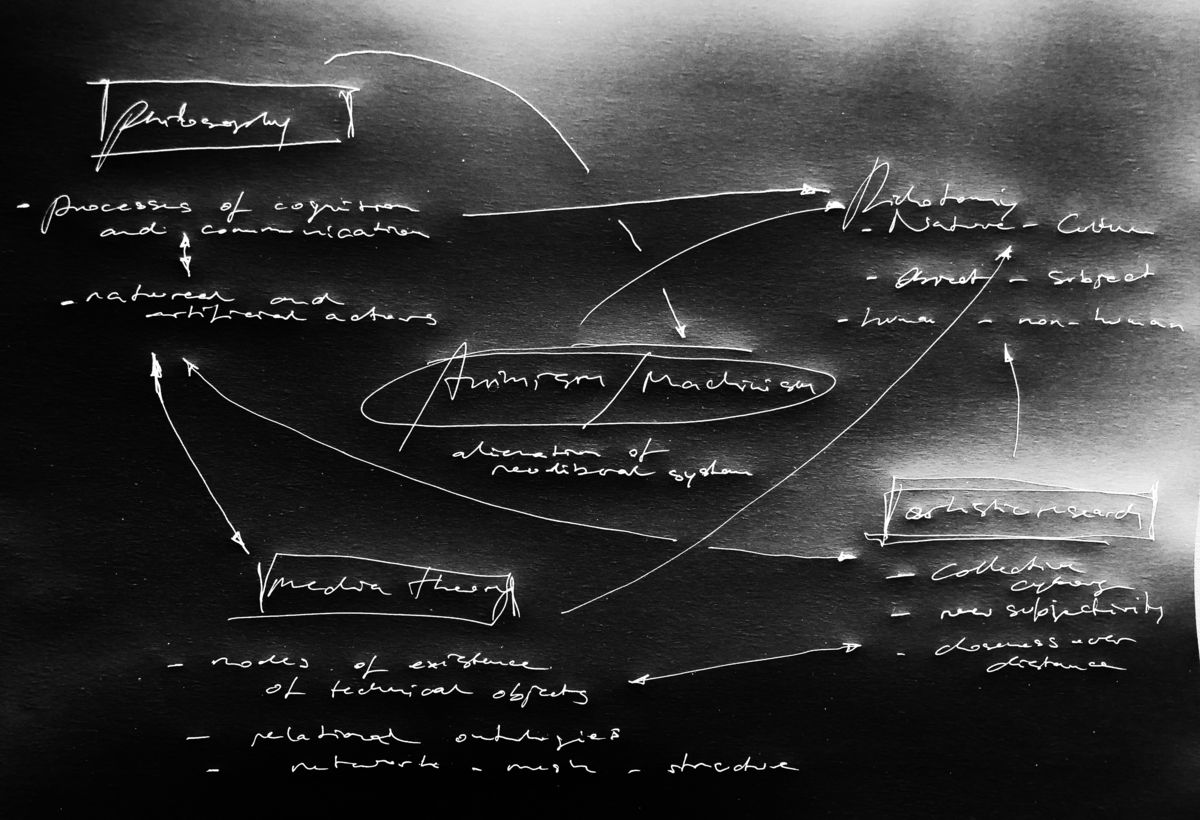 philosophy
- processes of cognition
and communication
- natureal and
artificial actions
Dichotomy
- Nature - Culture
- Object - Subject
- human - non-human
Animism / Machinism
alienation of
neoliberal system
artistic research
- Collective
cyborg
- new subjectivity
- closeness over
distance
media theory
- modes of existence
of technical objects
- relational ontologies
- network - mesh - structure